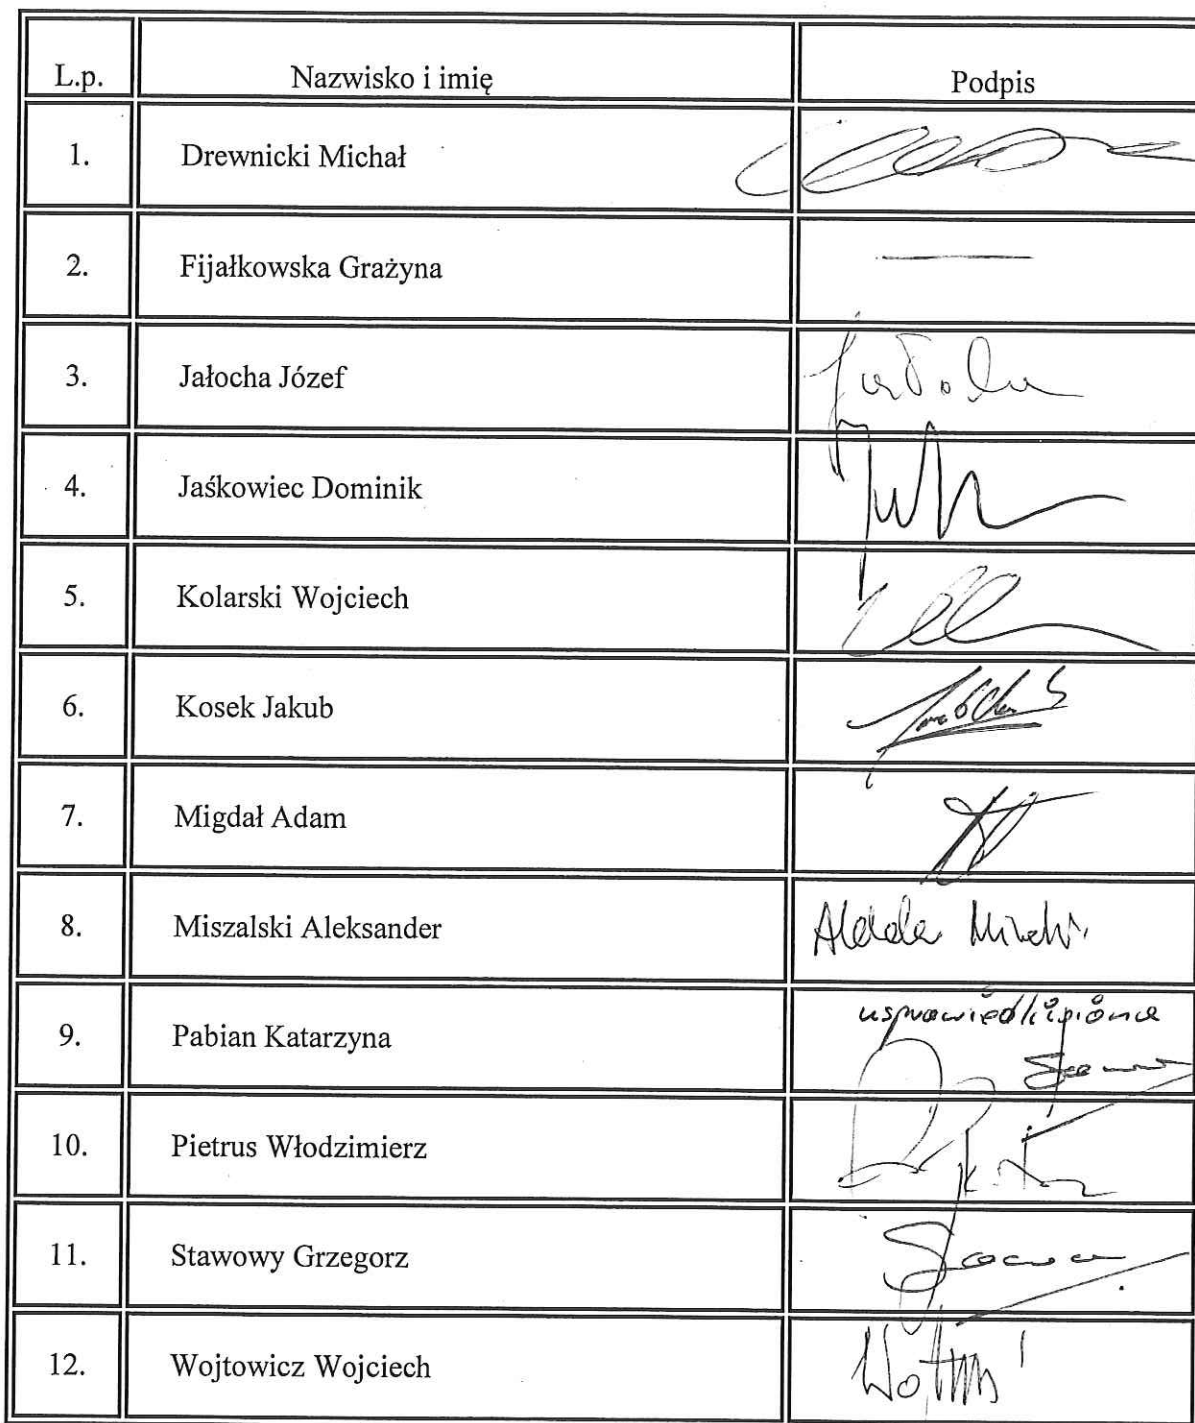 L.p. Nazwisko i imię Podpis
1. Drewnicki Michał
2. Fijałkowska Grażyna —
3. Jałocha Józef
4. Jaśkowiec Dominik
5. Kolarski Wojciech
6. Kosek Jakub
7. Migdał Adam
8. Miszalski Aleksander
9. Pabian Katarzyna usprawiedliwiona
10. Pietrus Włodzimierz
11. Stawowy Grzegorz
12. Wojtowicz Wojciech